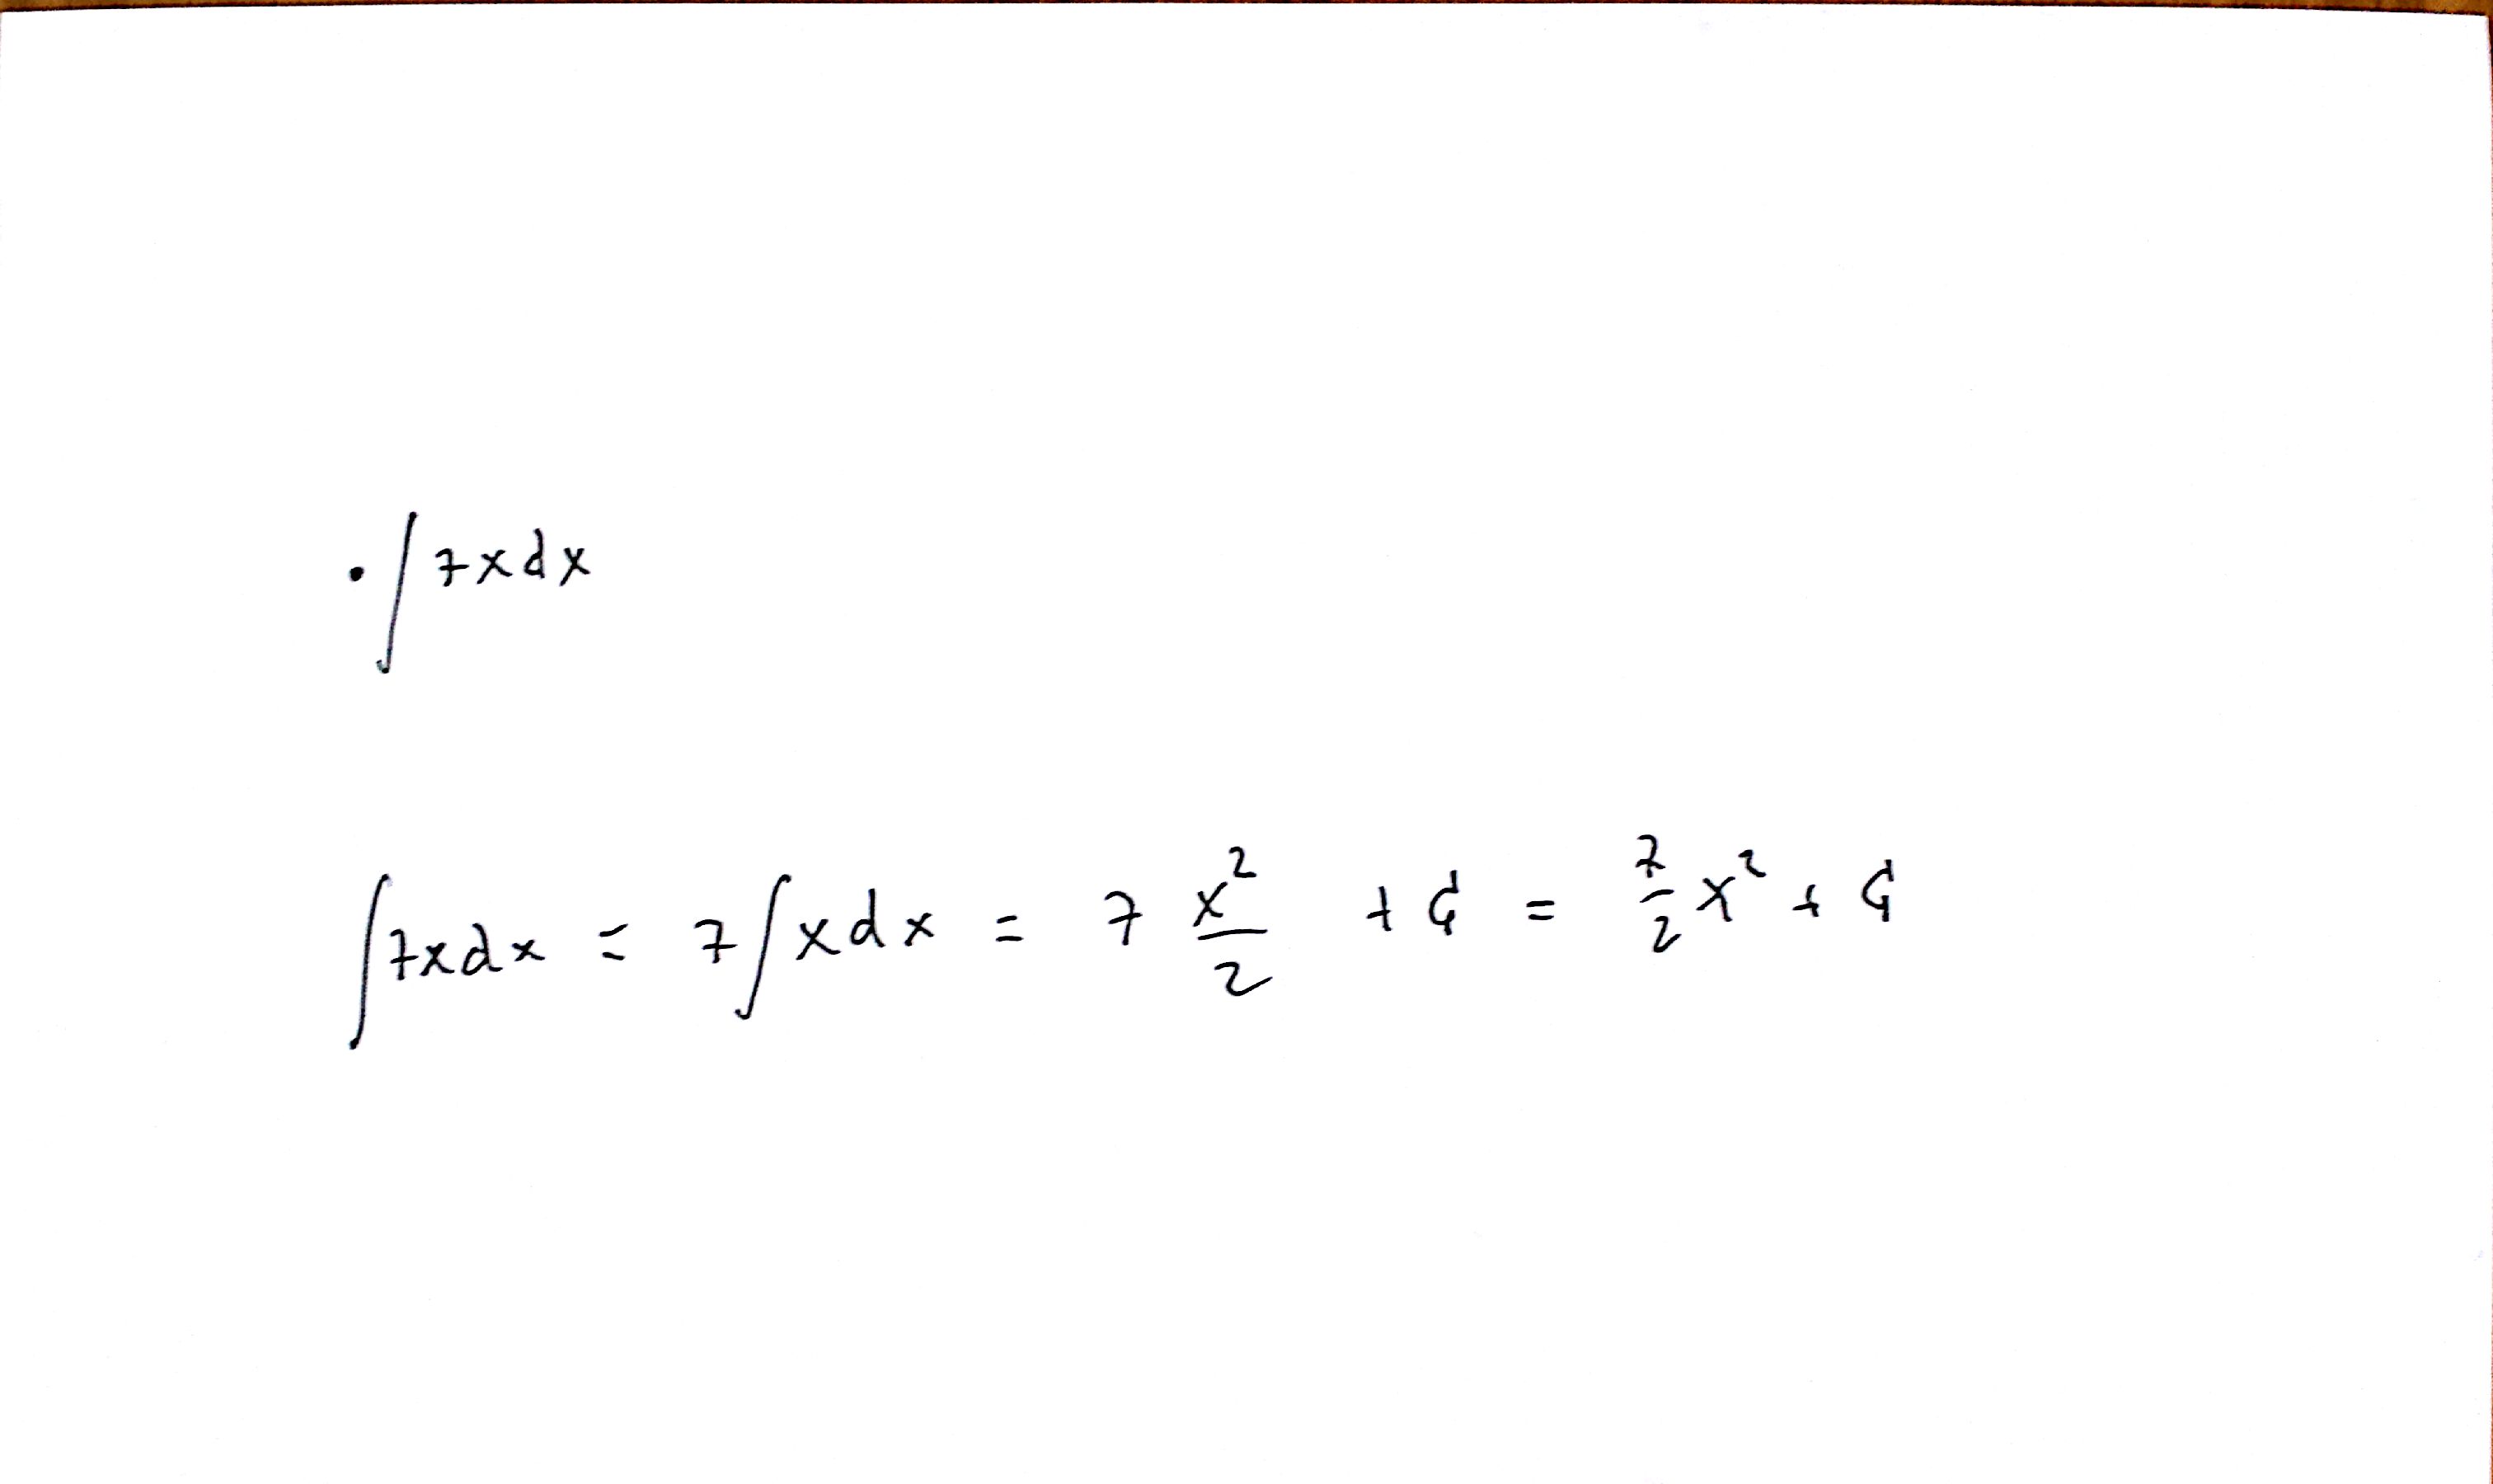 • ∫7xdx
∫7xdx = 7∫xdx = 7 x²/2 + C = 7/2 x² + C